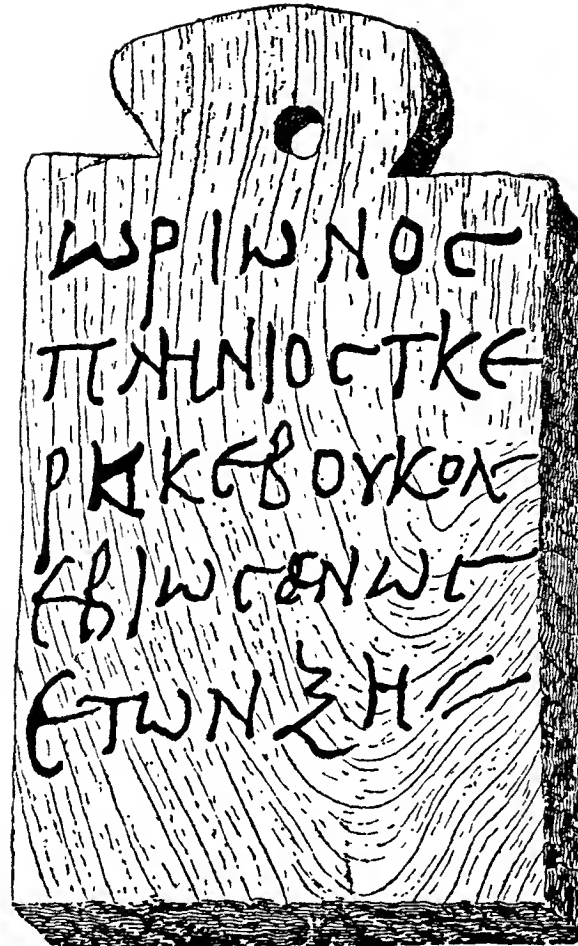 ωριωνος
πληνιοςτκε
ρηκεβουκολ
εβιωσενως
ετωνξη//